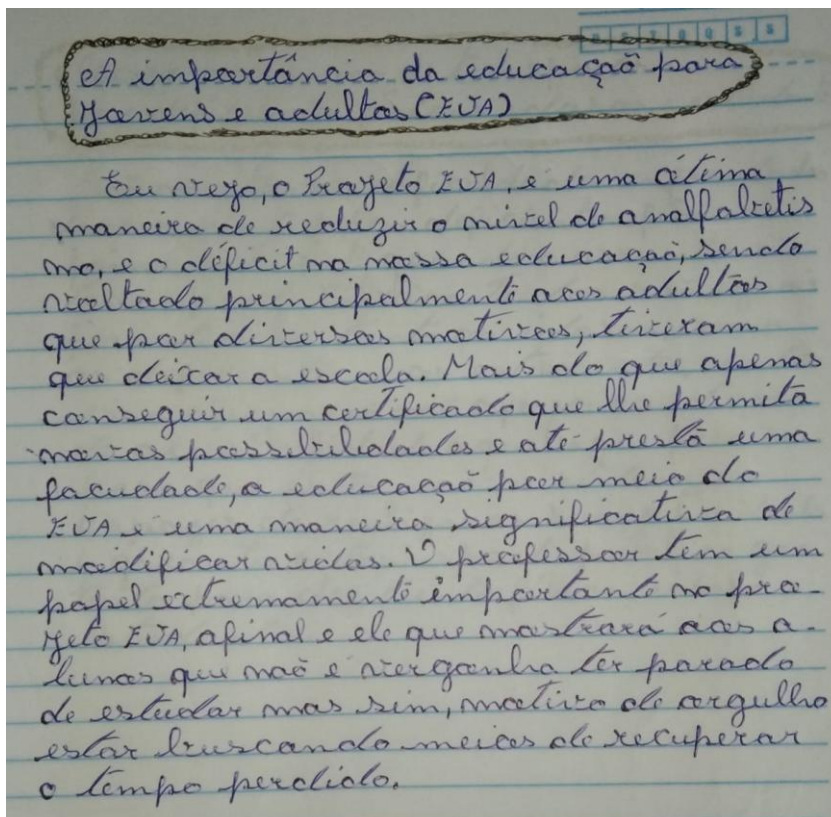 D S T Q Q S S
A importância da educação para
Jovens e adultos (EJA)
Eu vejo, o Projeto EJA, e uma ótima
maneira de reduzir o nível de analfabetis
mo, e o déficit na nossa educação, sendo
voltado principalmente aos adultos
que por diversos motivos, tiveram
que deixar a escola. Mais do que apenas
conseguir um certificado que lhe permita
novas possibilidades e até prestá uma
facudade, a educação por meio do
EJA e uma maneira significativa de
modificar vidas. O professor tem um
papel extremamente importante no pro-
jeto EJA, afinal e ele que mostrará aos a-
lunos que não e vergonha ter parado
de estudar mas sim, motivo de orgulho
estar buscando meios de recuperar
o tempo perdido.